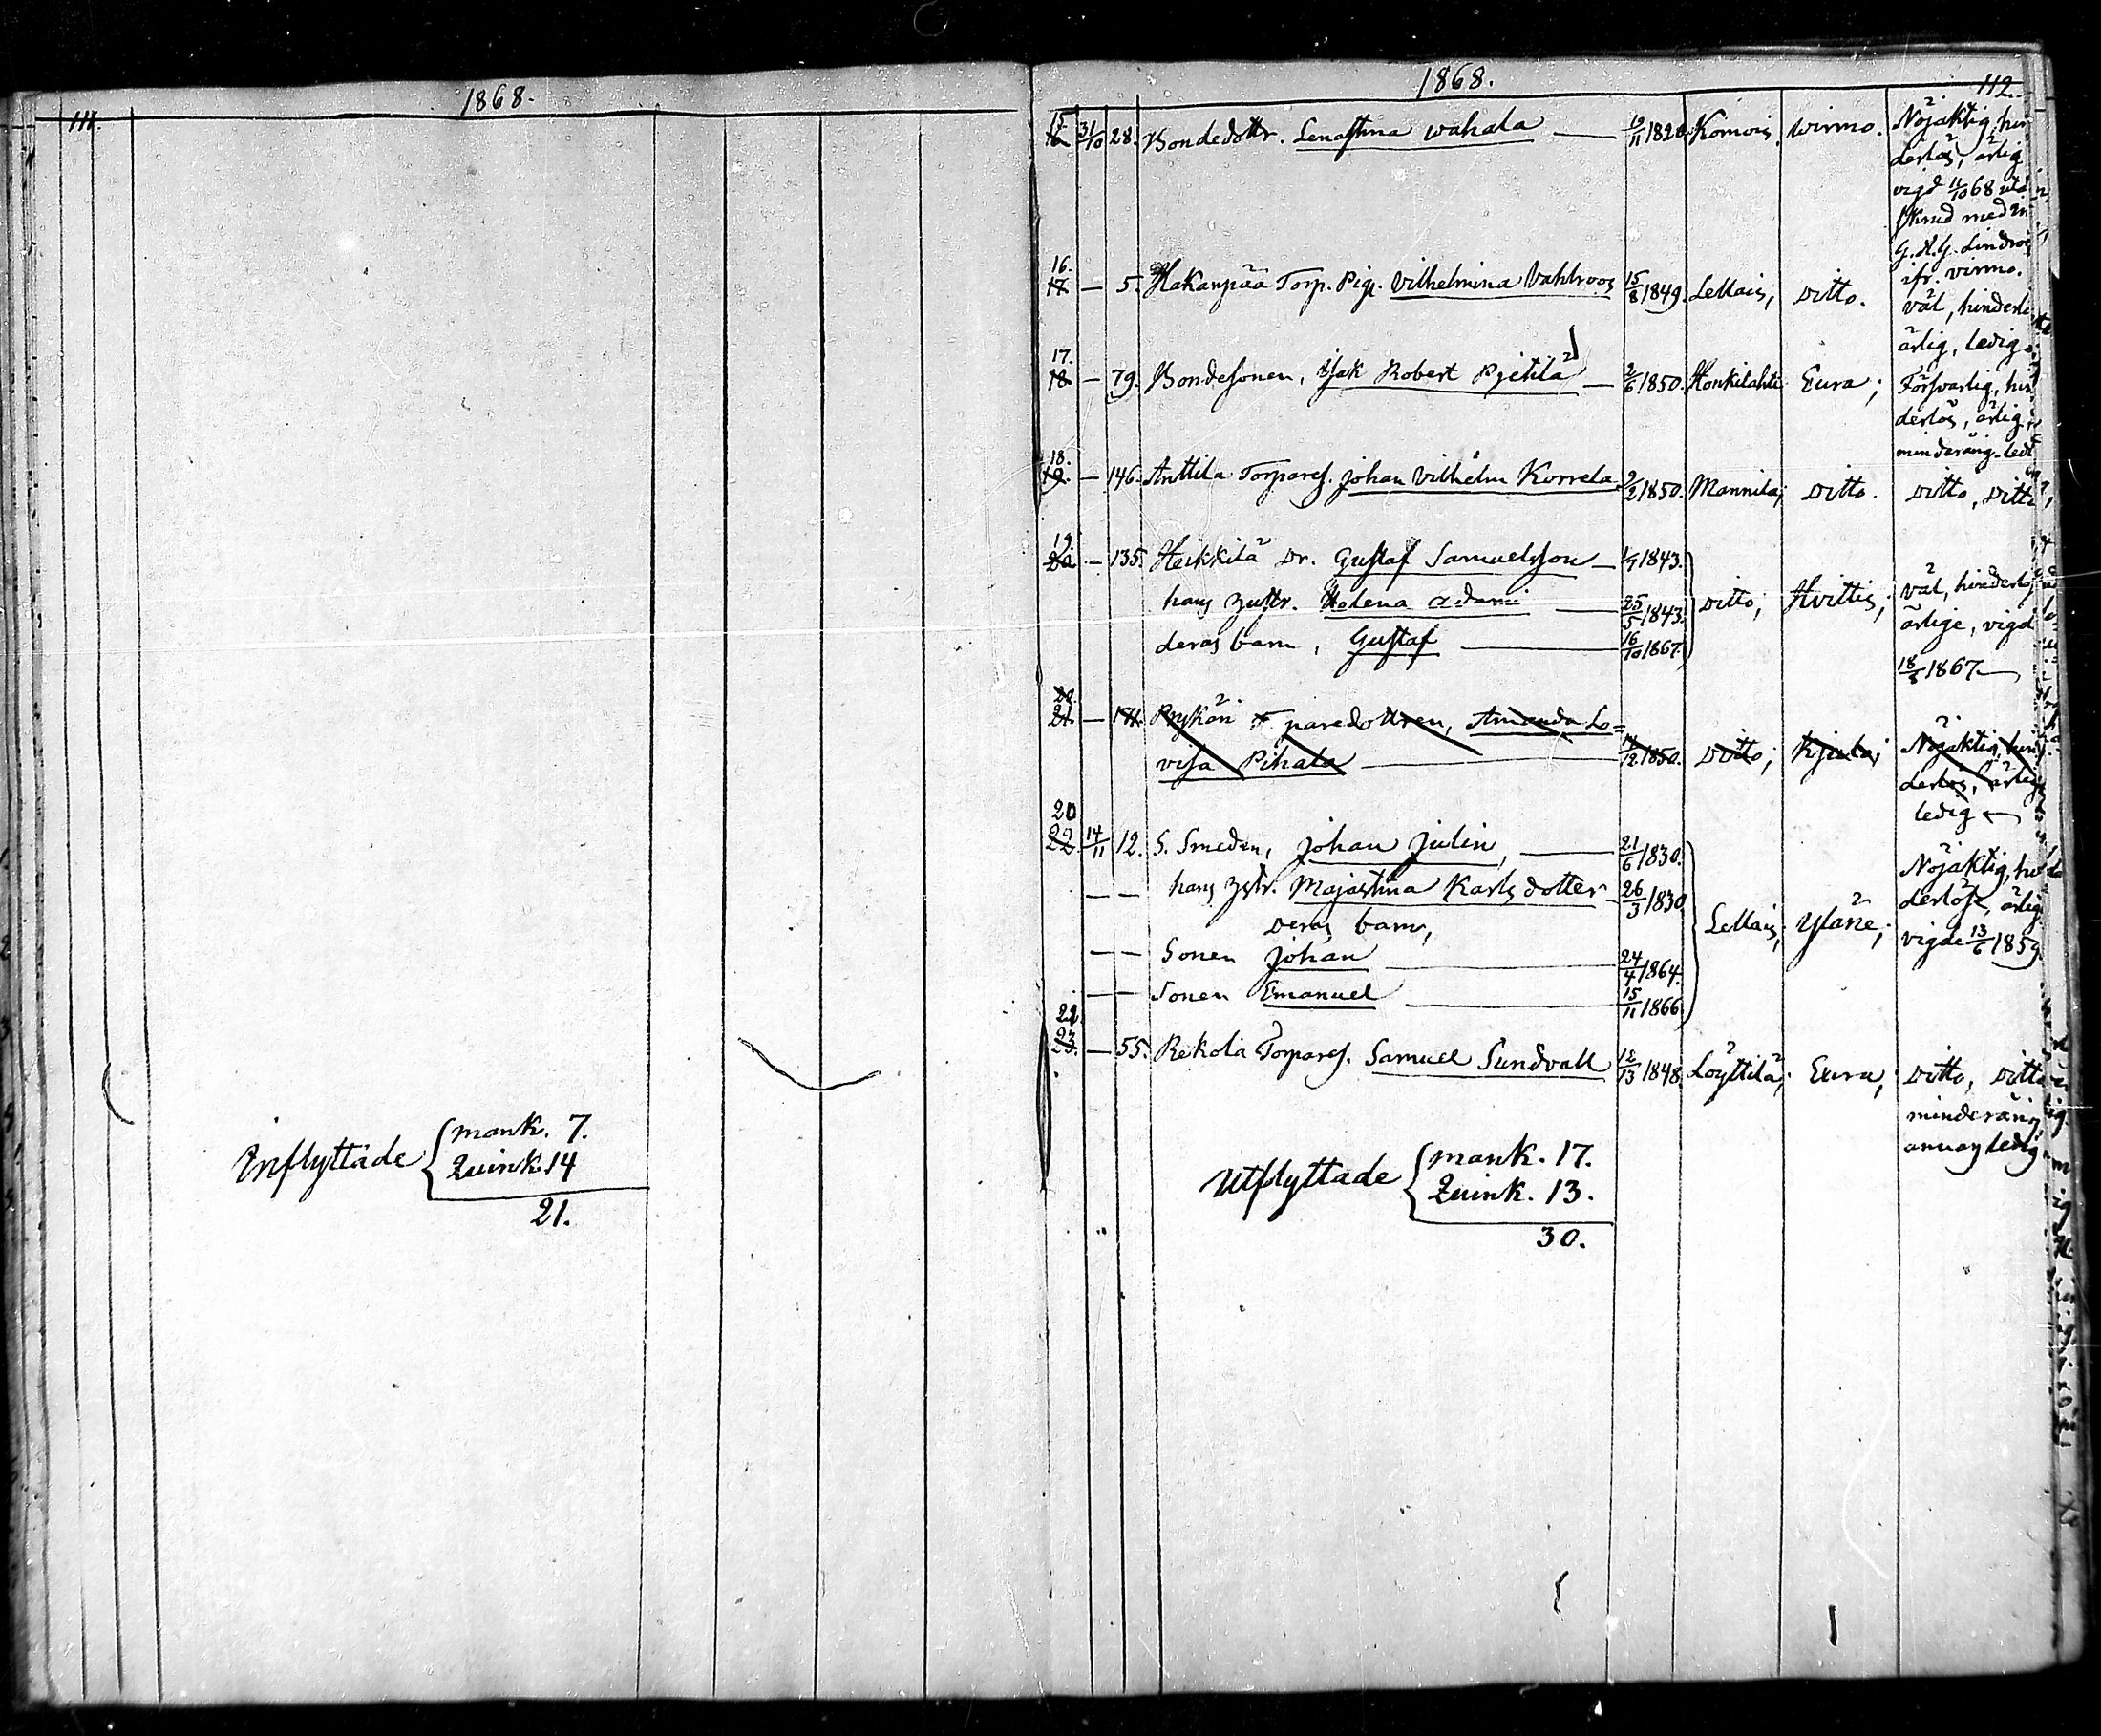 1868.
111.
Inflyttade { mank. 7.
Quink. 14
21.
1868.
112.
15 16 31/10 28. Bondedottr. Lenastina Wahala — 1820. Komois, Wirmo. Nöjaktig, hin
derlös, ärlig
vigd 11/10 68
med
G. H. G.
ifr. virmo.
16. 17 — 5. Hakanpää Torp. Pig. Vilhelmina Vahlroos 15/8 1849. Lellais, Ditto. väl, hinderlö
ärlig, ledig
17. 18 — 79. Bondesonen, Isak Robert Pjetilä — 2/6 1850. Honkilahti Eura; Försvarlig, hin
derlös, ärlig,
minderårig. led
18. 19. — 146. Anttila Torpares. Johan Vilhelm Korrela 9/2 1850. Mannila; Ditto. Ditto, Ditto
19. 20 — 135. Heikkilä Dr. Gustaf Samuelsson — 1/7 1843. Ditto; Hvittis; väl, hinderlös
hans hustr. Helena Adami — 25/5 1843. ärlige, vigd
deras barn, Gustaf — 16/10 1867. 18/8 1867. —
20. 21. — 171. Prykäri paredottren, Amanda Lo=
visa Pihala — 14/12 1850. Ditto; Kjula; Nöjaktig, hin
derlös, ärlig
ledig —
20 22. 14/11 12. S. Smeden, Johan Julin, — 21/6 1830. Nöjaktig, hin
— — hans hstr. Majastina Karlsdotter — 26/3 1830 derlöse, ärlig
Deras barn, Lellais; Yläne; vigde 13/6 1859
— — Sonen Johan — 24/4 1864.
— — Sonen Emanuel — 15/11 1866.
21. 23. — 55. Rekola Torpares. Samuel Sundvall 12/13 1848 Löyttilä; Eura; Ditto, Ditto
minderårig,
annars ledig
Utflyttade { mank. 17.
Quink. 13.
30.